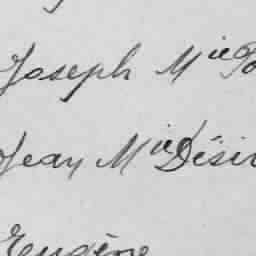 Joseph Mie
Jean Mie Désir
Eugène